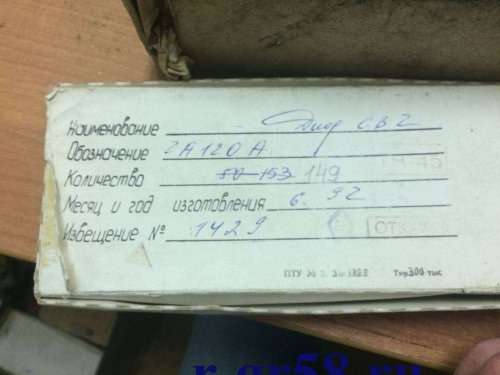 Наименование Диод СВЧ
Обозначение 2А120А
Количество 50 153 149
Месяц и год изготовления 6. 92
Извещение № 1429
ОТК
ПТУ № Тир. 300 тыс
r-gr58.ru